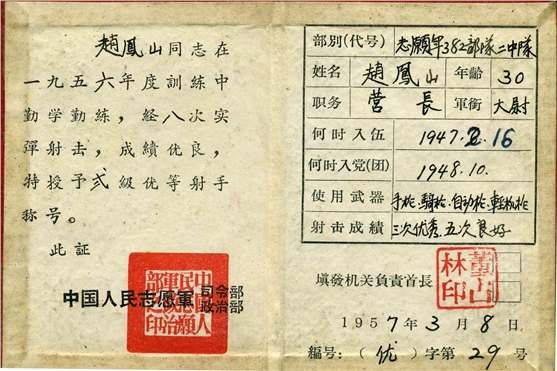 趙鳳山同志在
一九五六年度訓練中
勤学勤練，経八次实
彈射击，成績优良，
特授予弍級优等射手
称号。
此証
中国人民志愿軍 司令部
政治部
部別(代号) 志願軍382部隊二中隊
姓名 趙鳳山 年齡 30
职务 营長 軍銜 大尉
何时入伍 1947.2.16
何时入党(团) 1948.10.
使用武器 手枪.騎枪.自动枪.軽机枪
射击成績 三次优秀.五次良好
填發机关負責首長
董山
林印
1957年3月8日
編号：(优)字第29号